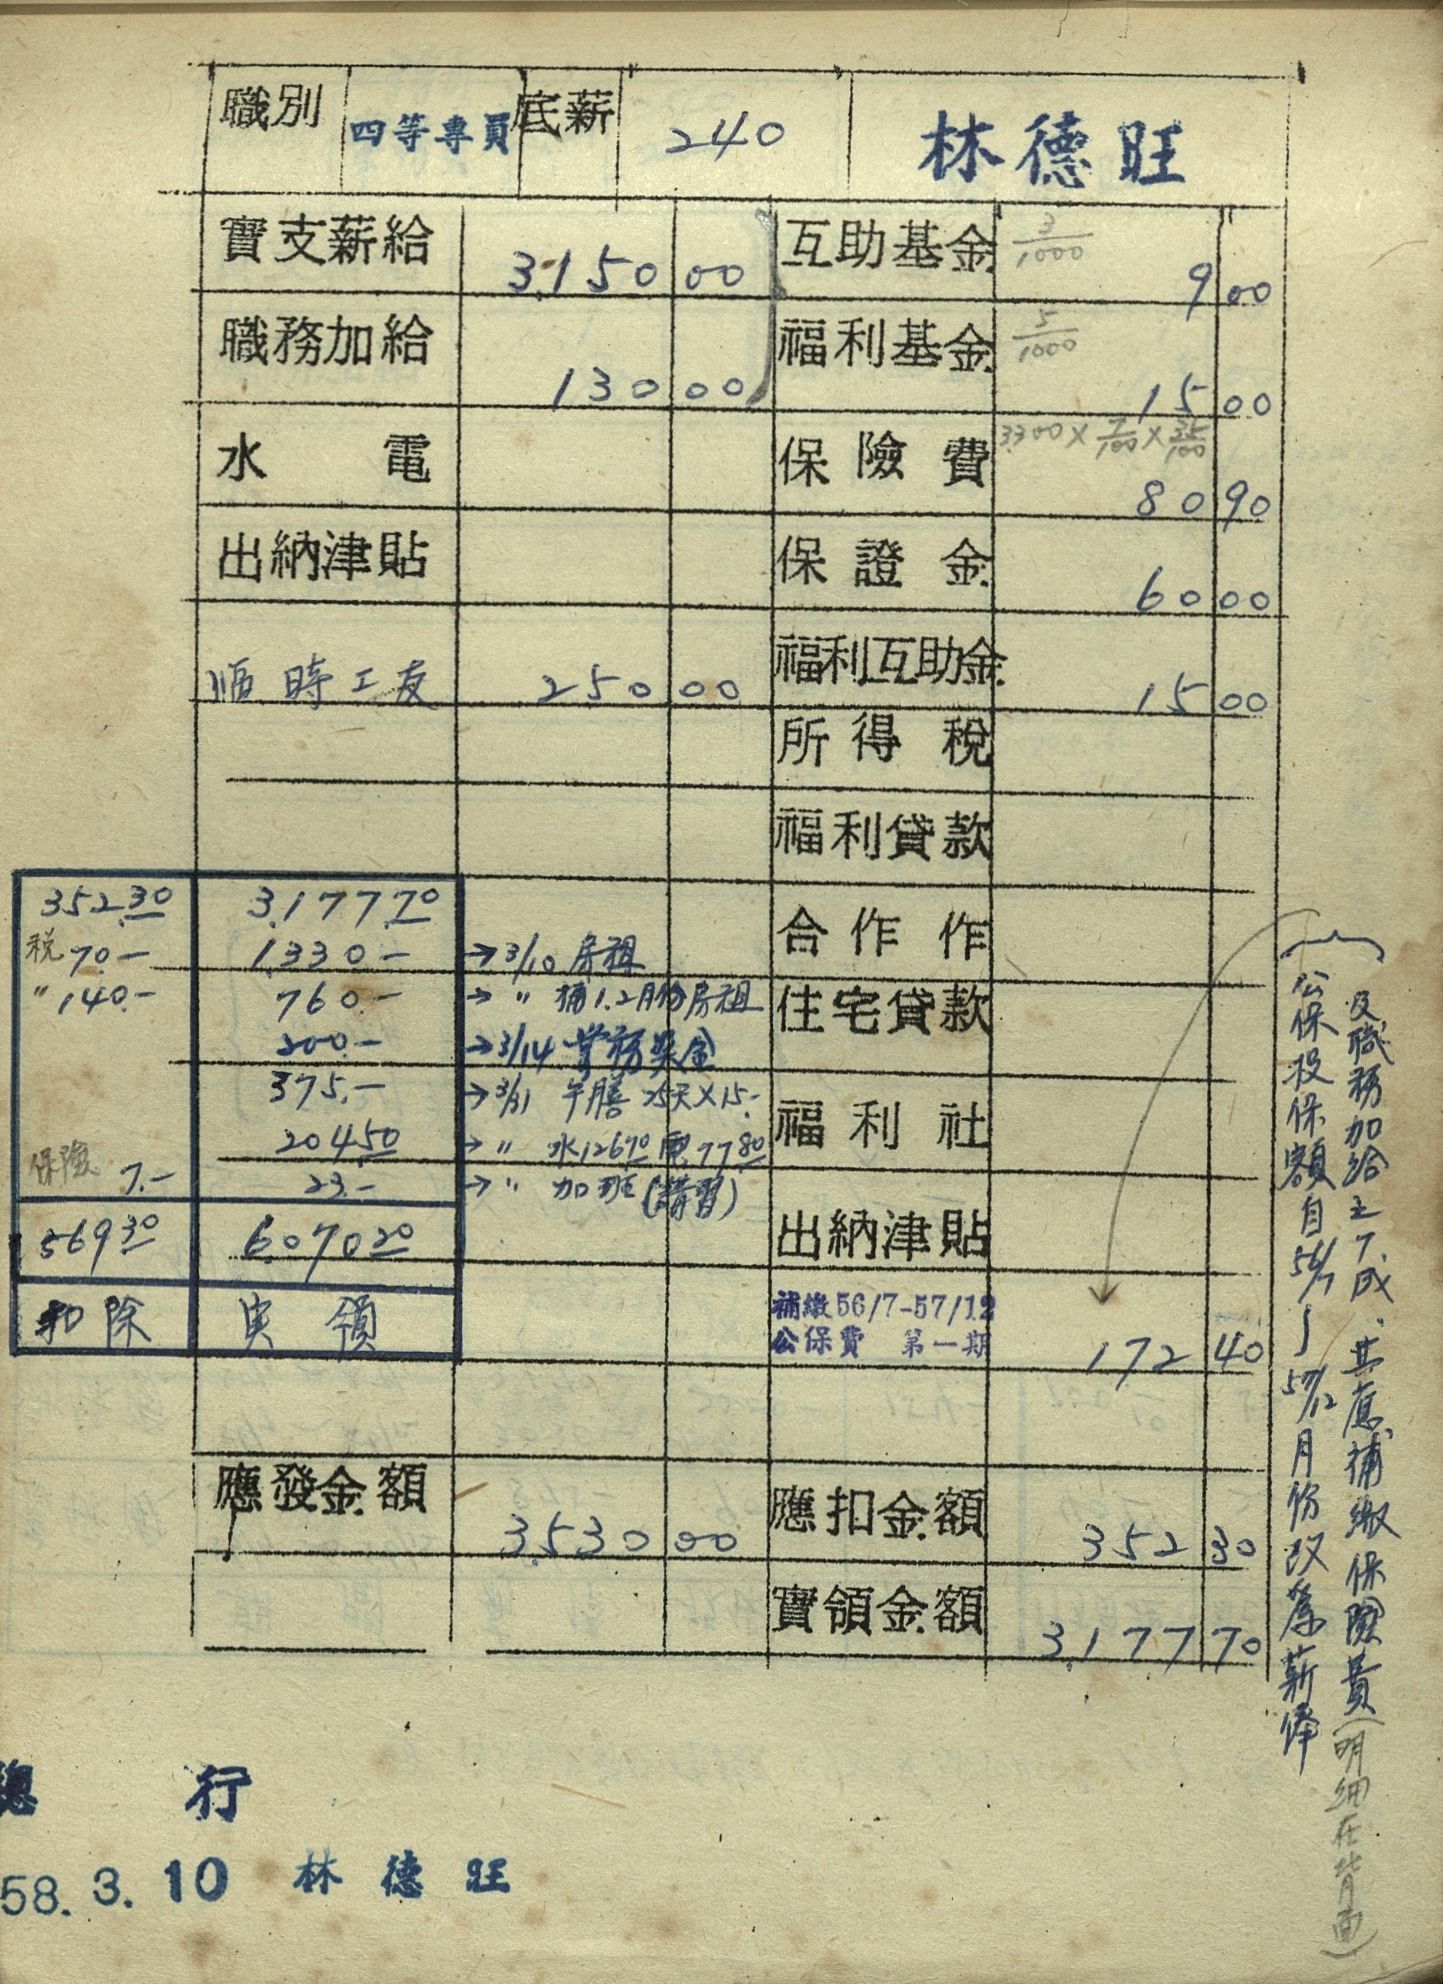 職別 四等專員 底薪 240 林德旺
實支薪給 3,150 00 互助基金 3/1000 9 00
職務加給 130 00 福利基金 5/1000 15 00
水電 保險費 3300×7/100×35/100 80 90
出納津貼 保證金 60 00
順時工友 250 00 福利互助金 15 00
所得稅
福利貸款
合作作
住宅貸款
福利社
出納津貼
補繳56/7-57/12
公保費 第一期 172 40
應發金額 3,530 00 應扣金額 352 30
實領金額 3,177 70
352.30 3,177.70
稅 70.- 1,330.- →3/10 房租
〃 140.- 760.- →〃 補1.2月份房租
200.- →3/14 業務奬金
375.- →3/31 午膳 25天×15.-
204.50 →〃 水126.70 電77.80
保險 7.- 23.- →〃 加班(講習)
569.30 6,070.20
扣除 実領
公保投保額自56/7~57/12月份改為薪俸
及職務加給之7成,其應補繳保險費(明細在背面)
總行
58.3.10 林德旺